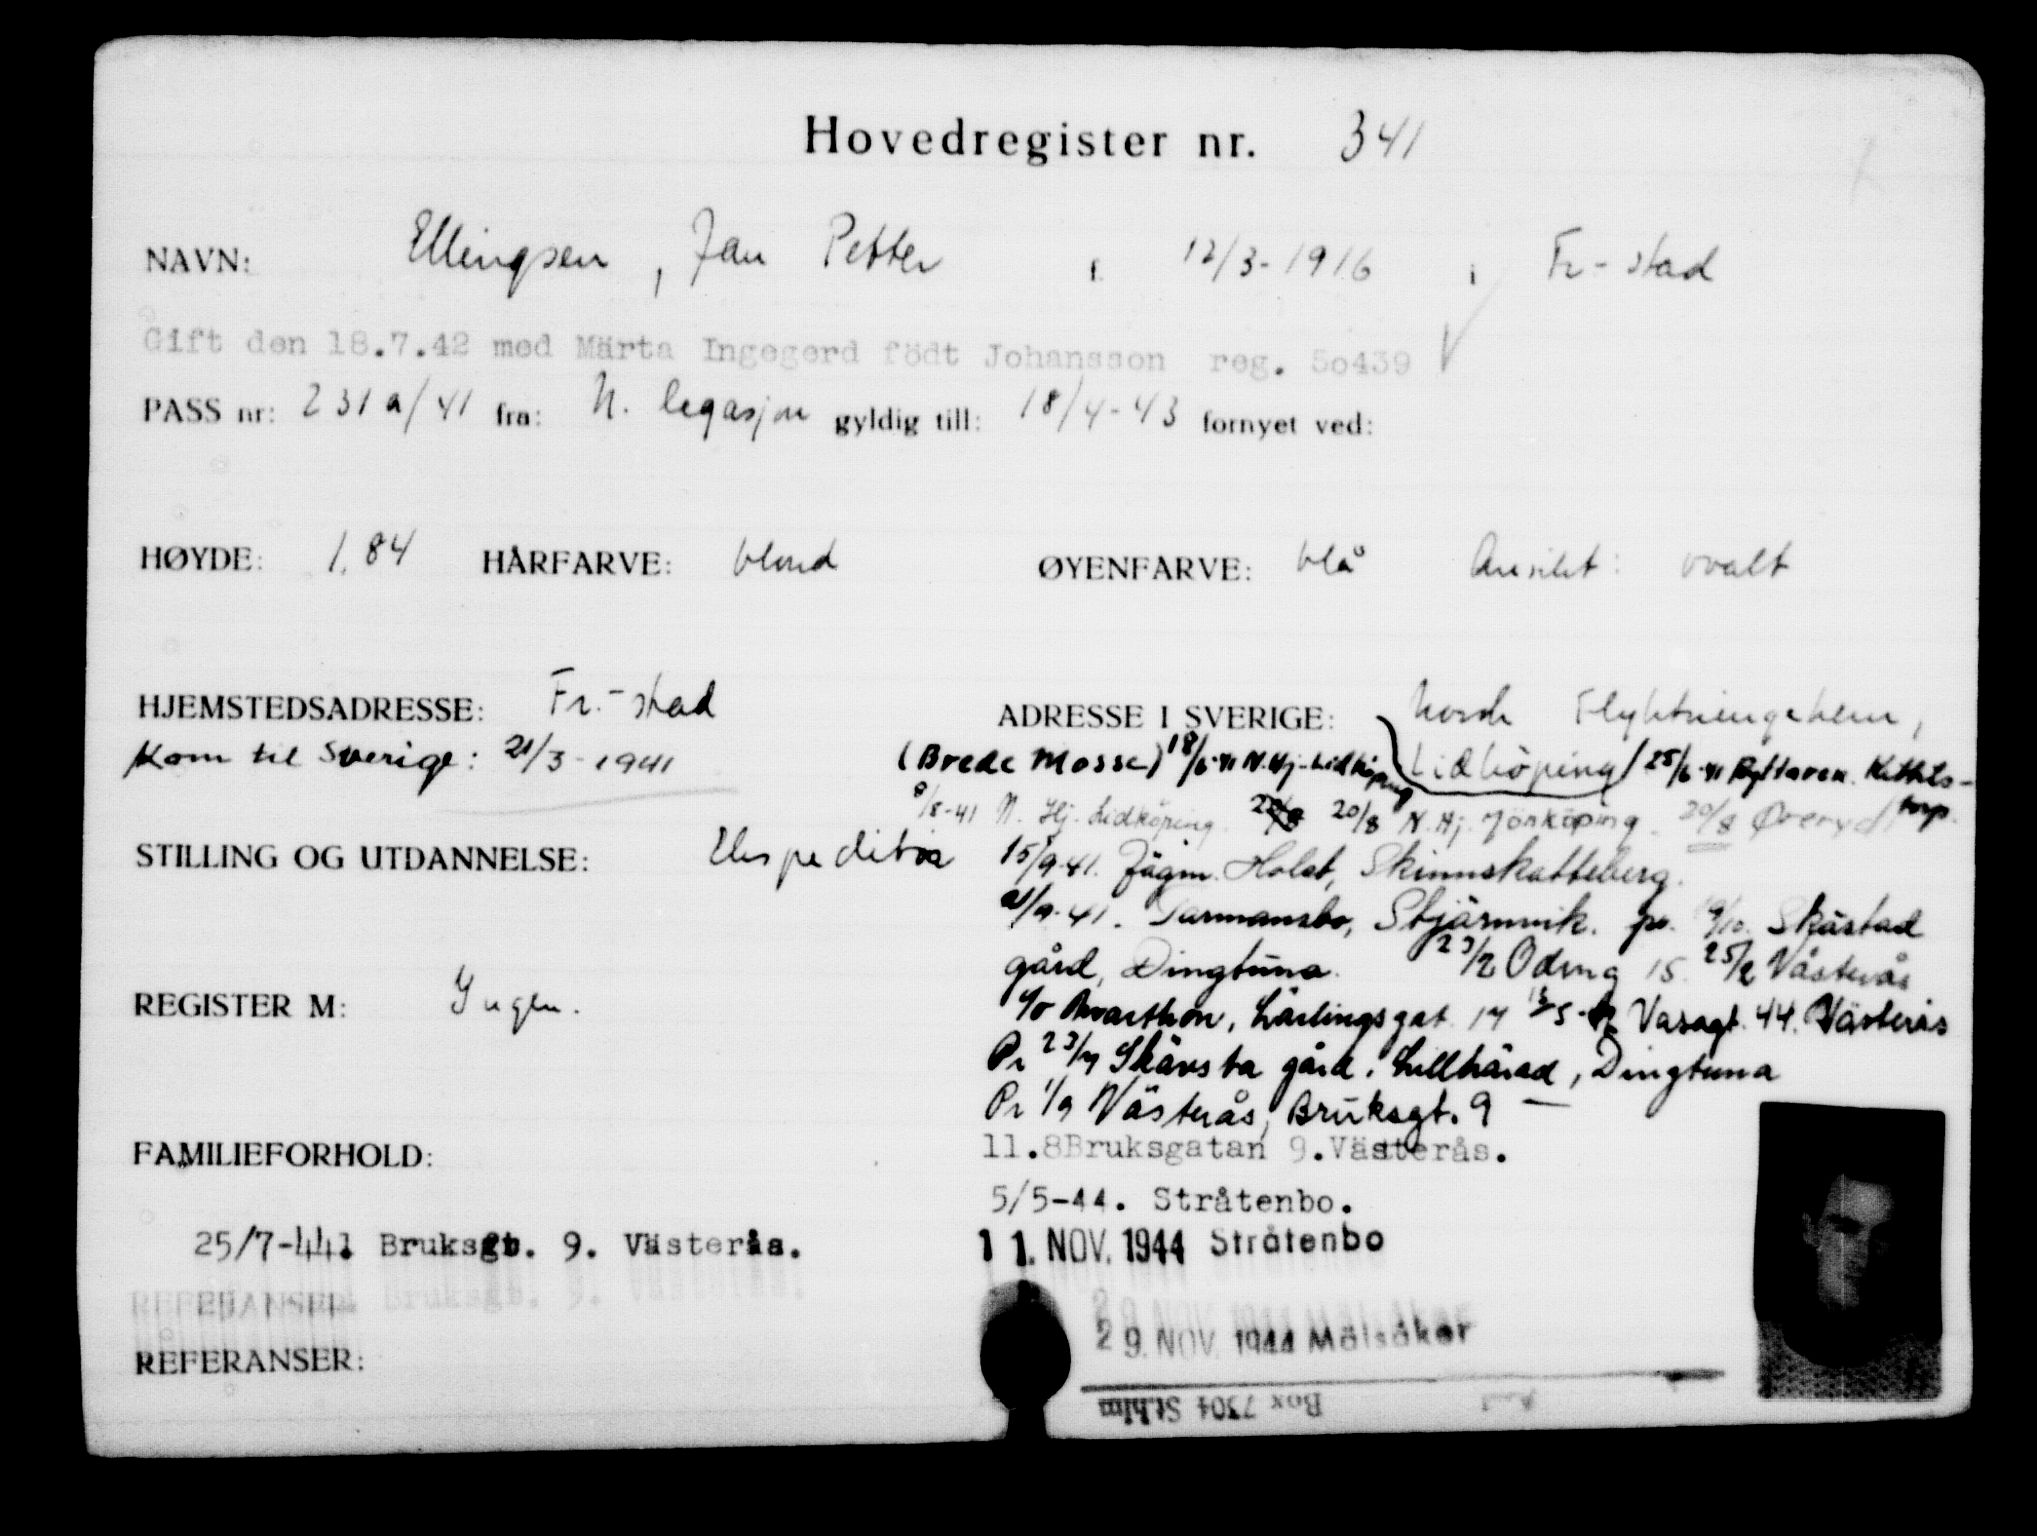 Hovedregister nr. 341
NAVN: Ellingsen, Jan Petter f. 12/3-1916 i Fr-stad
Gift den 18.7.42 med Märta Ingegerd födt Johansson reg. 5o439 V
PASS nr: 231a/41 fra: N. legasjon gyldig till: 18/4-43 fornyet ved:
HØYDE: 1.84 HÅRFARVE: blond ØYENFARVE: blå Ansikt: ovalt
HJEMSTEDSADRESSE: Fr.-stad
Kom til Sverige: 21/3-1941
STILLING OG UTDANNELSE:
REGISTER M: Ingen.
FAMILIEFORHOLD:
25/7-44 Bruksgt. 9. Västerås.
REFERANSER:
ADRESSE I SVERIGE: Norsk Flyktningehem,
Lidköping
(Brede Mosse) 18/6-41 N.Hj-Lidköping 25/6-41 Ryttaren. Kättils-
torp.
8/8-41 N. Hj. Lidköping. 20/8 N.Hj. Jönköping. 20/8 Øreryd
15/9-41. Jägm. Holst, Skinnskatteberg.
21/9-41. Tarmansbo, Stjärnvik. pr. Skästad
gård, Dingtuna. 23/2 Odeng 15. 25/2 Västerås
c/o Lärlingsgat. 17 Vasagt. 44. Västerås
Pr 23/7 Skävsta gård. Lillhärad, Dingtuna
Pr 1/9 Västerås, Bruksgt. 9 —
11.8Bruksgatan 9.Västerås.
5/5-44. Stråtenbo.
11. NOV. 1944 Stråtenbo
29. NOV. 1944 Mälsåker
Box 7304 Sthlm